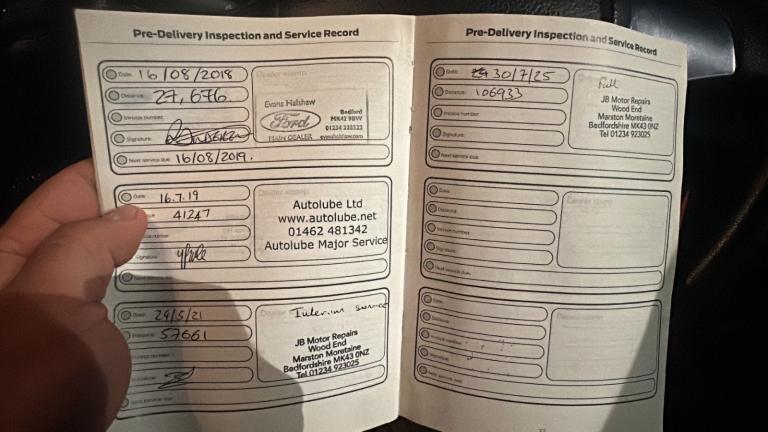 Pre-Delivery Inspection and Service Record
Date: 16/08/2018
Dealer stamp:
Distance: 27,676
Invoice number:
Signature:
Next service due: 16/08/2019.
Evans Halshaw
Ford
MAIN DEALER
Bedford
MK42 9BW
01234 328522
evanshalshaw.com
Date: 16.7.19
Dealer stamp:
41247
Signature:
Next service due:
Autolube Ltd
www.autolube.net
01462 481342
Autolube Major Service
Date: 29/5/21
Dealer
Interim Service
Distance: 57661
Invoice number:
Signature:
Next service due:
JB Motor Repairs
Wood End
Marston Moretaine
Bedfordshire MK43 0NZ
Tel 01234 923025
Pre-Delivery Inspection and Service Record
Date: 30/7/25
Full
Distance: 106933
Invoice number:
Signature:
Next service due:
JB Motor Repairs
Wood End
Marston Moretaine
Bedfordshire MK43 0NZ
Tel 01234 923025
Date:
Dealer stamp:
Distance:
Invoice number:
Signature:
Next service due:
Date:
Dealer stamp:
Distance:
Invoice number:
Next service due: